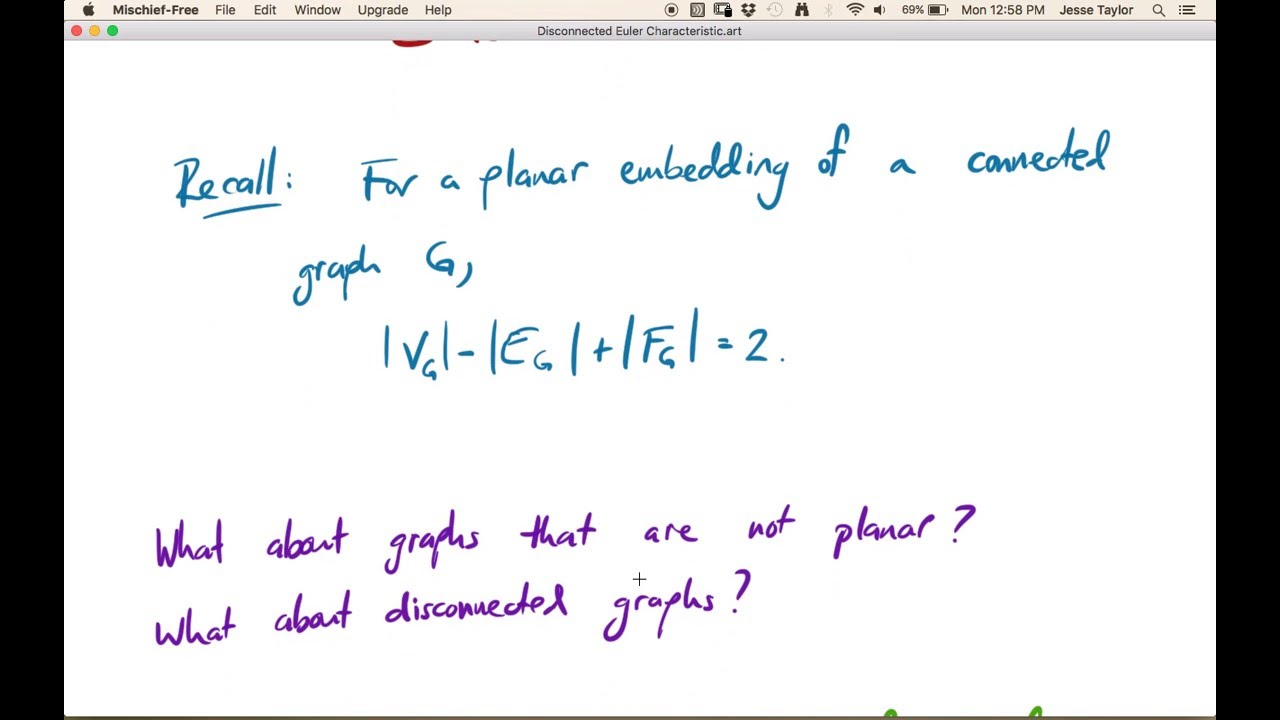 Mischief-Free File Edit Window Upgrade Help 69% Mon 12:58 PM Jesse Taylor
Disconnected Euler Characteristic.art
Recall: For a planar embedding of a connected
graph G,
|V_G| - |E_G| + |F_G| = 2.
What about graphs that are not planar?
What about disconnected graphs?